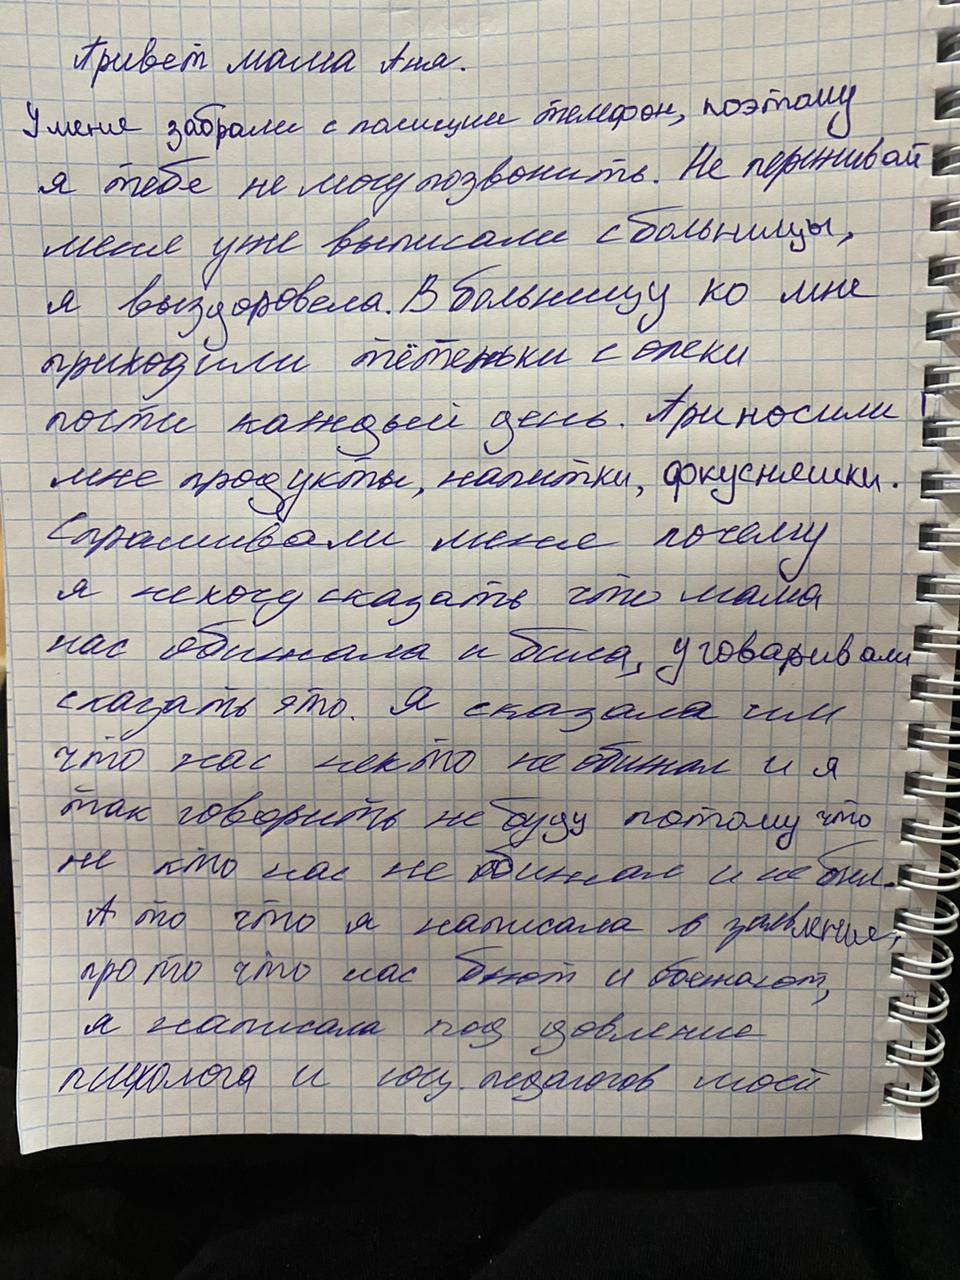 Привет мама Аня.
У меня забрали с полиции телефон, поэтому
я тебе не могу позвонить. Не переживай
меня уже выписали с больницы,
я выздоровела. В больницу ко мне
приходили тётеньки с опеки
почти каждый день. Приносили
мне продукты, напитки, фкусняшки.
Спрашивали меня почему
я не хочу сказать что мама
нас обижала и била, уговаривали
сказать это. Я сказала им
что нас некто не обижал и я
так говорить не буду потому что
не кто нас не обижал и не бил.
А то что я написала в заявление,
про то что нас бьют и обежают,
я написала под довление
психолога и соц. педагогов моей